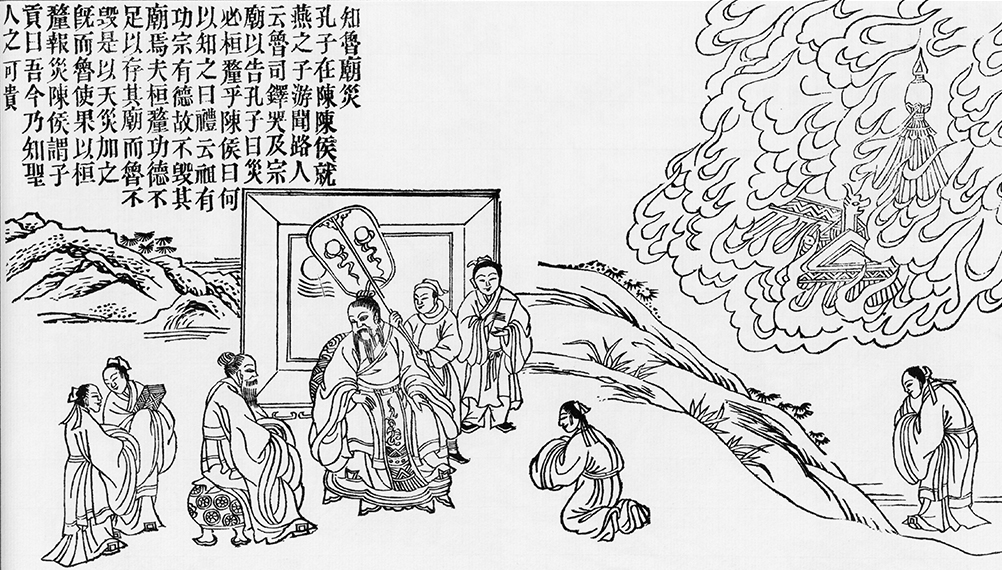 知魯廟災
孔子在陳陳侯就
燕之子游聞路人
云魯司鐸哭及宗
廟以告孔子曰災
必桓釐乎陳侯曰何
以知之曰禮云祖有
功宗有德故不毀其
廟焉夫桓釐功德不
足以存其廟而魯不
毀是以天災加之
既而魯使果以桓
釐報災陳侯謂子
貢曰吾今乃知聖
人之可貴